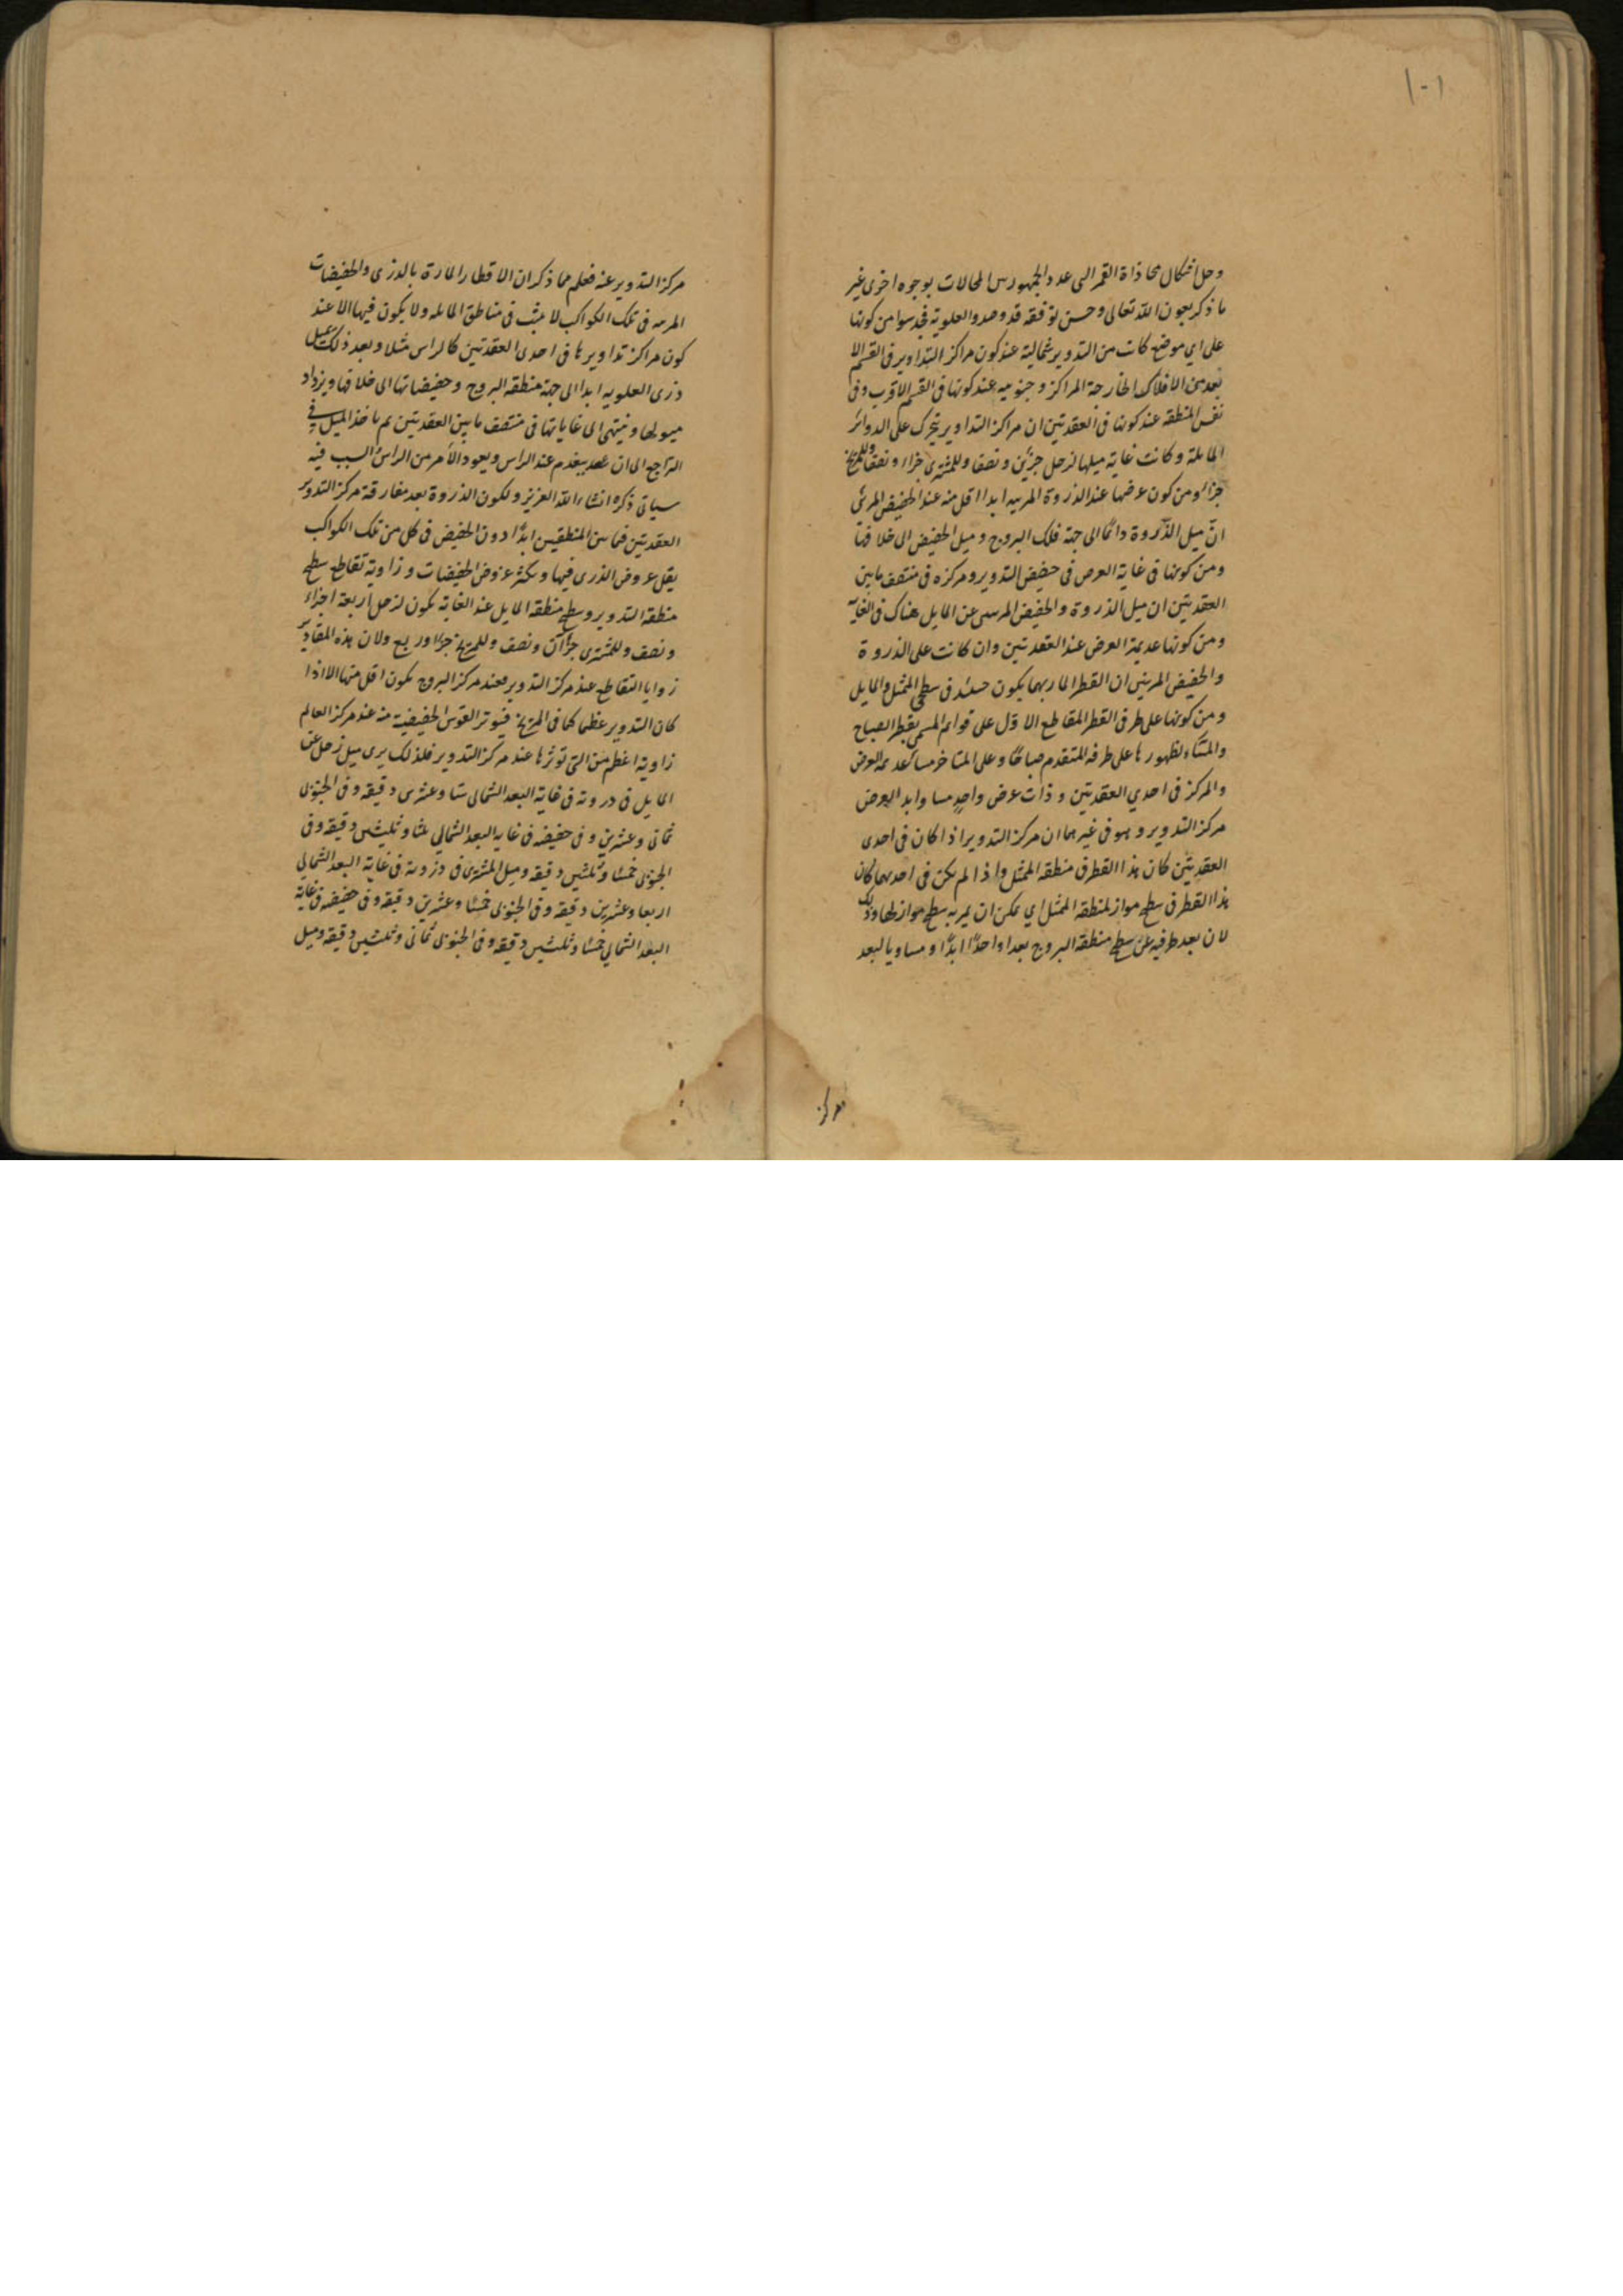 ١٠١
وحل اشكال محاذاة القمر التى عدد الجمهور من المحالات بوجوه اخرى غير
ما ذكر بعون الله تعالى وحسن توفيقه قد وجدوا العلوية فحدسوا من كونها
على اى موضع كانت من التدوير شمالية عند كون مراكز التداوير فى القسم الا
بعد من الافلاك الخارجة المراكز وجنوبيه عند كونها فى القسم الاقرب وفى
نفس المنطقه عند كونها فى العقدتين ان مراكز التداوير يتحرك على الدوائر
المايلة وكانت غاية ميلها لزحل جزئين ونصفا وللمشترى جزاء ونصفا وللمريخ
جزاء ومن كون عرضها عند الذروة المرييه ابدا اقل منه عند الحضيض المرئى
ان ميل الذروة دائما الى جهة فلك البروج وميل الحضيض الى خلافها
ومن كونها فى غاية العرض فى حضيض التدوير ومركزه فى منتصف مابين
العقدتين ان ميل الذروة والحضيض المرسى عن المايل هناك فى الغاية
ومن كونها عديمة العرض عند العقدتين وان كانت على الذروة
والحضيض المرئيين ان القطر المار بهما يكون حينئذ فى سطحى الممثل والمايل
ومن كونها على طرفى القطر المقاطع الاول على قوائم المسمى بقطر الصباح
والمساء لظهورها على طرفه المتقدم صباحا وعلى المتاخر مساء عديمة العرض
والمركز فى احدى العقدتين وذات عرض واحد مساو ابدا لعرض
مركز التدوير وهو فى غيرهما ان مركز التدوير اذا كان فى احدى
العقدتين كان هذا القطر فى منطقه الممثل واذا لم يكن فى احديهما كان
هذا القطر فى سطح مواز لمنطقه الممثل اى يمكن ان يمر به سطح مواز لها وذلك
لان بعد طرفيه عن سطح منطقة البروج بعدا واحدا ابدا ومساويا لبعد
مركز
مركز التدوير عنه فعلم مما ذكر ان الاقطار المارة بالذرى والحضيضات
المرييه فى تلك الكواكب لا يثبت فى مناطق المايله ولا يكون فيها الا عند
كون مراكز تداويرها فى احدى العقدتين كالراس مثلا وبعد ذلك يميل
ذرى العلويه ابدا الى جهة منطقه البروج وحضيضاتها الى خلافها ويزداد
ميولها وينتهى الى غاياتها فى منتصف مابين العقدتين ثم ياخذ الميل فى
التراجع الى ان ينعدم عند الراس ويعود الامر من الراس والسبب فيه
سياتى ذكره انشاء الله العزيز ولكون الذروة بعد مفارقة مركز التدوير
العقدتين فيما بين المنطقتين ابدا دون الحضيض فى كل من تلك الكواكب
يقل عروض الذرى فيها ويكثر عروض الحضيضات وزاوية تقاطع سطح
منطقة التدوير وسطح منطقه المايل عند الغاية يكون لزحل اربعة اجزاء
ونصف وللمشترى جزآن ونصف وللمريخ جزءا وربع ولان هذه المقادير
زوايا التقاطع عند مركز التدوير فعند مركز البروج يكون اقل منها الا اذا
كان التدوير عظيما كما فى المريخ فيوتر القوس الحضيضية منه عند مركز العالم
زاوية اعظم من التى توترها عند مركز التدوير فلذلك يرى ميل زحل عن
المايل فى ذروته فى غاية البعد الشمالى ستا وعشرين دقيقه وفى الجنوبى
ثمانى وعشرين وفى حضيضه فى غاية البعد الشمالى ثلثا وثلثين دقيقه وفى
الجنوبى خمسا وثلثين دقيقه وميل المشترى فى ذروته فى غاية البعد الشمالى
اربعا وعشرين دقيقه وفى الجنوبى خمسا وعشرين دقيقه وفى حضيضه فى غاية
البعد الشمالى خمسا وثلثين دقيقه وفى الجنوبى ثمانى وثلثين دقيقه وميل